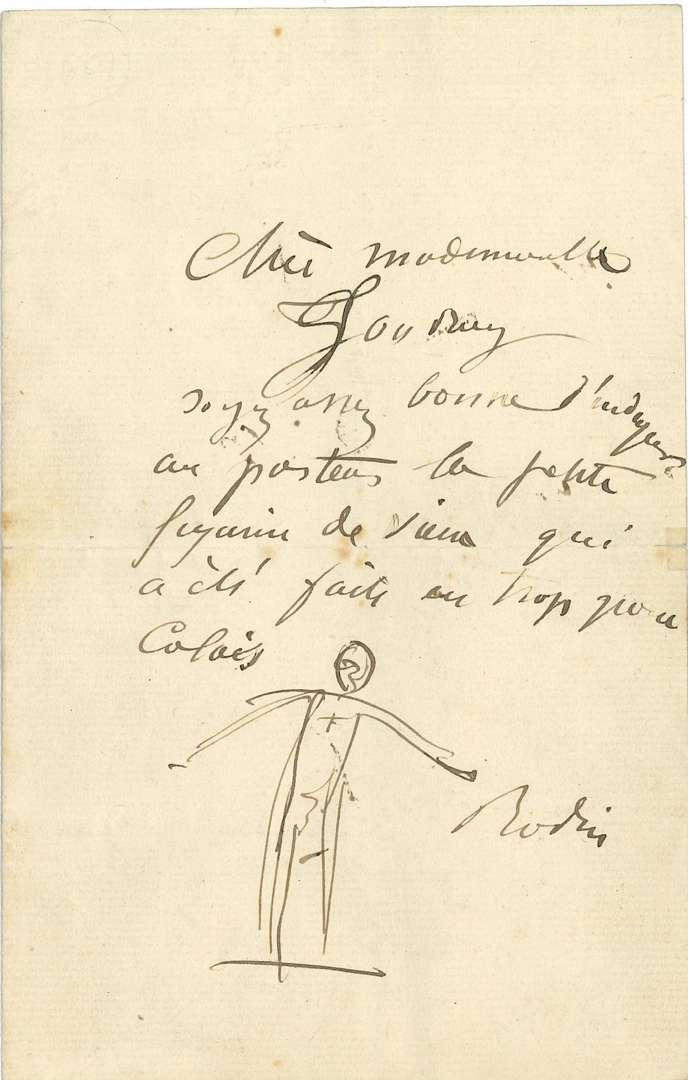 Chèr mademoiselle
soyez assez bonne d'indiquer
au porteur la petite
figurine de vieux qui
a été faite en trop pour
Calais
Rodin